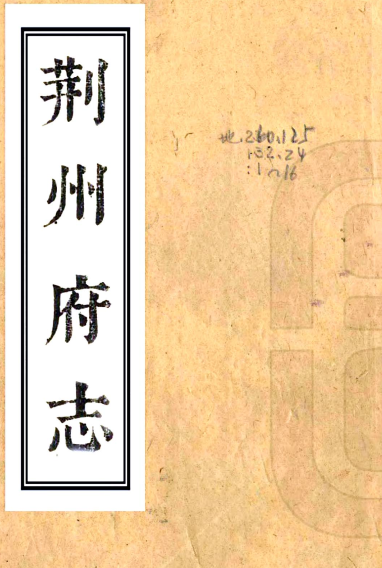 荆州府志
地.260.125
:02.24
:1~16